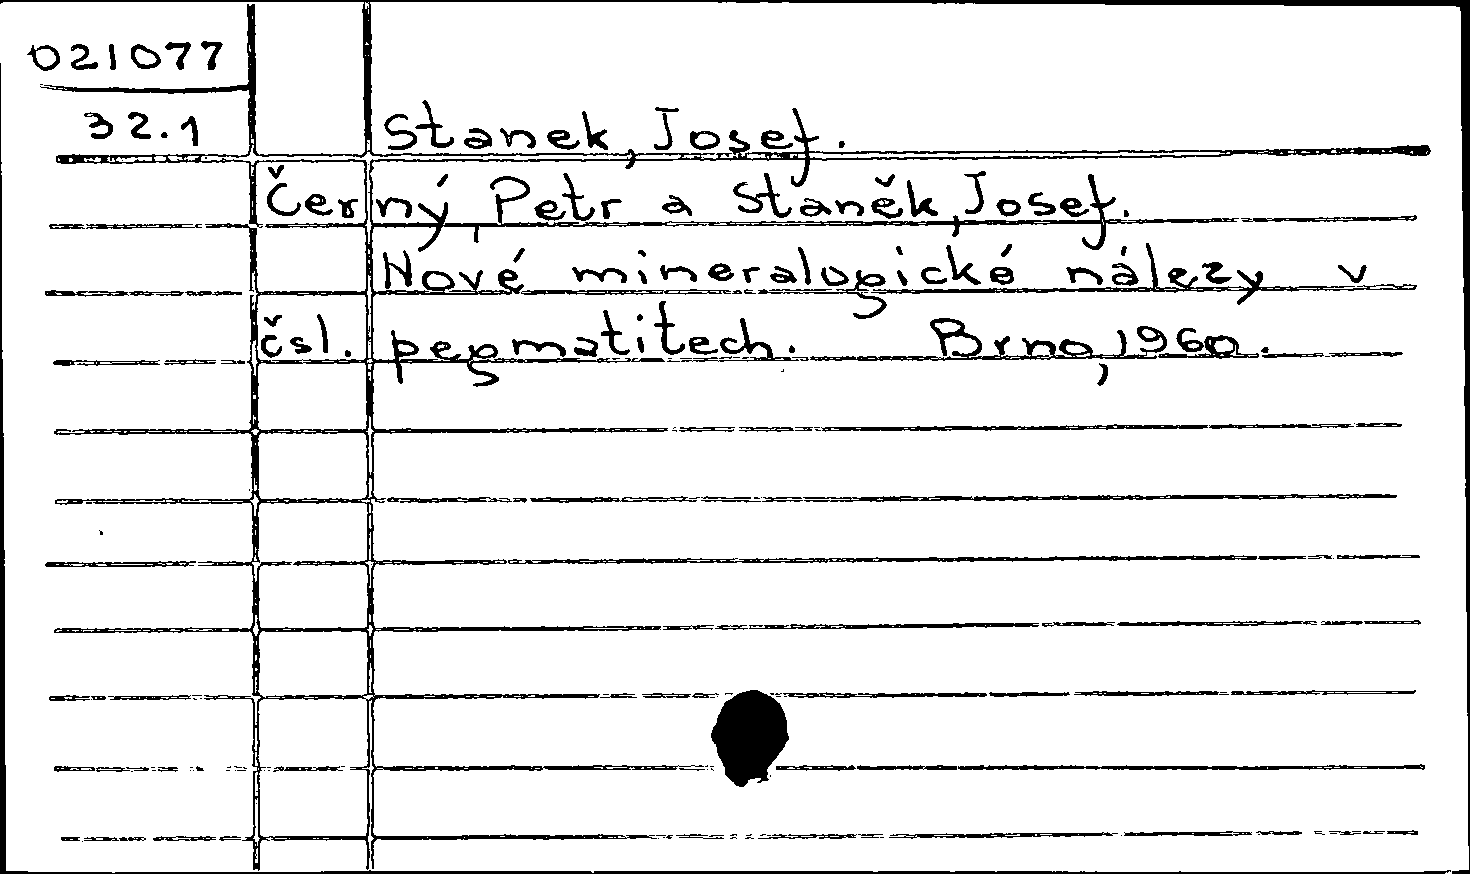 021077
32.1
Stanek, Josef.
Černý, Petr a Staněk, Josef.
Nové mineralogické nálezy v
čsl. pegmatitech. Brno, 1960.